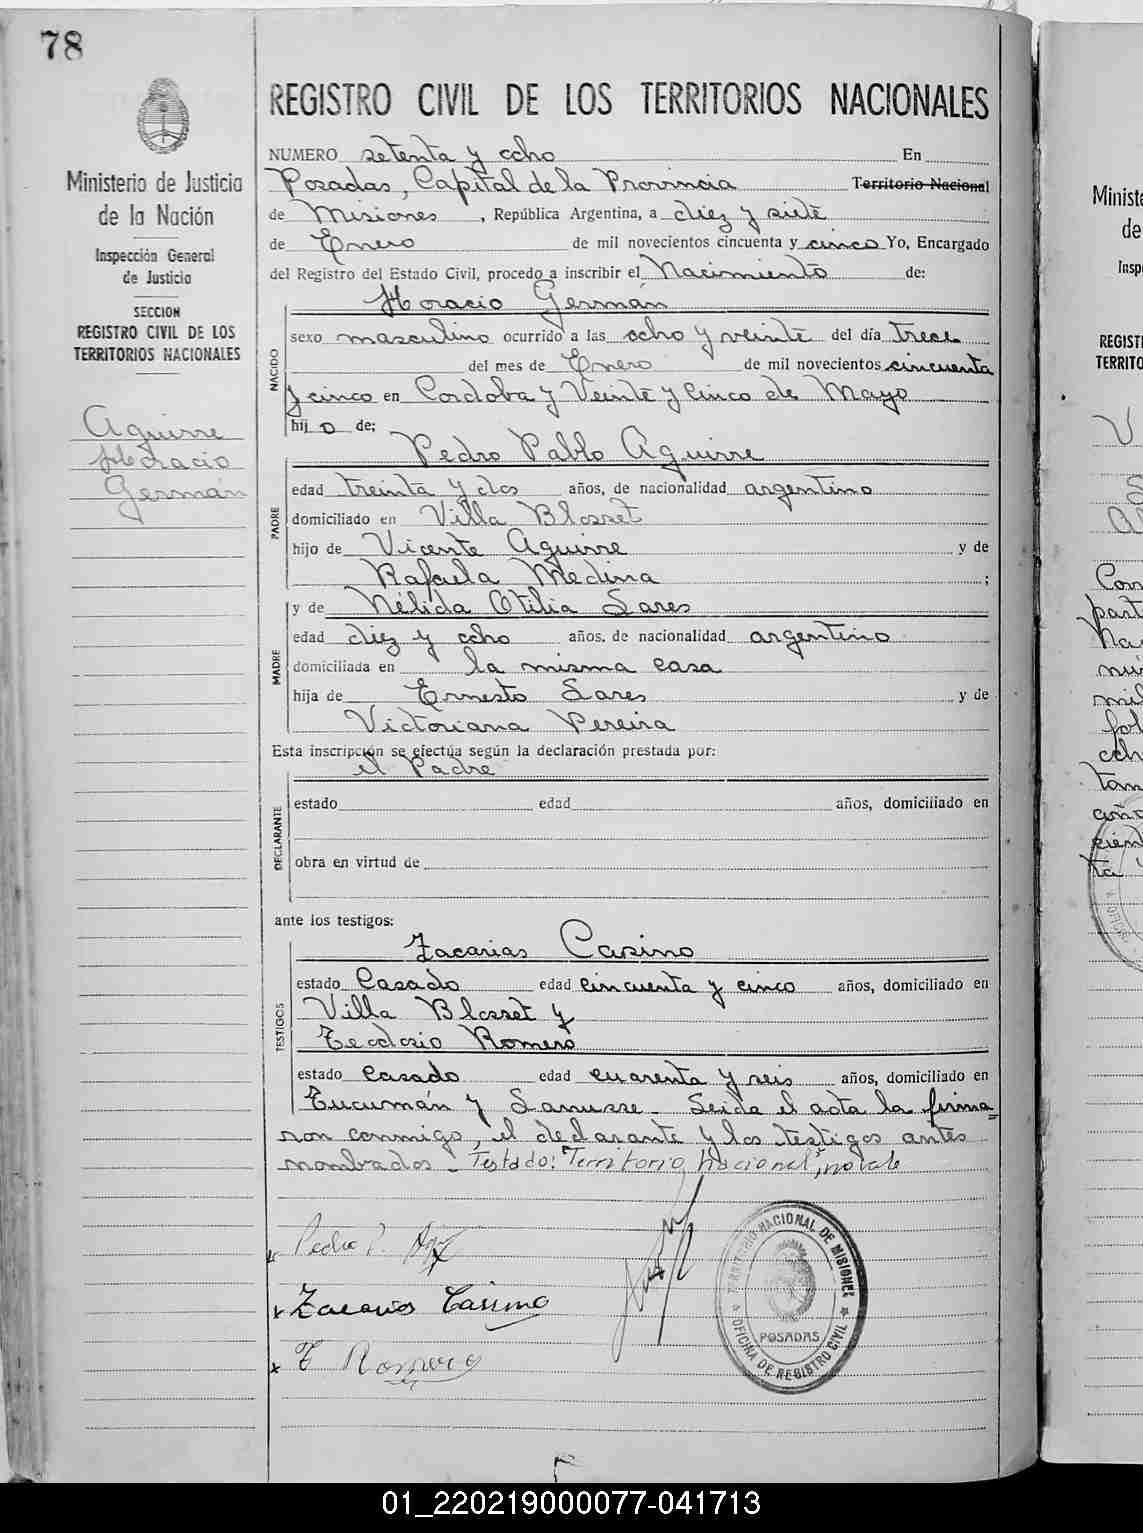 78
Ministerio de Justicia
de la Nación
Inspección General
de Justicia
SECCION
REGISTRO CIVIL DE LOS
TERRITORIOS NACIONALES
Aguirre
Horacio
Germán
REGISTRO CIVIL DE LOS TERRITORIOS NACIONALES
NUMERO setenta y ocho En
Posadas, Capital de la Provincia Territorio Nacional
de Misiones, República Argentina, a diez y siete
de Enero de mil novecientos cincuenta y cinco Yo, Encargado
del Registro del Estado Civil, procedo a inscribir el Nacimiento de:
Horacio Germán
NACIDO
sexo masculino ocurrido a las ocho y veinte del día trece
del mes de Enero de mil novecientos cincuenta
y cinco en Cordoba y Veinte y Cinco de Mayo
hijo de;
Pedro Pablo Aguirre
PADRE
edad treinta y dos años, de nacionalidad argentino
domiciliado en Villa Blosset
hijo de Vicente Aguirre y de
Rafaela Medina ;
y de Nélida Otilia Sares
MADRE
edad diez y ocho años, de nacionalidad argentino
domiciliada en la misma casa
hija de Ernesto Sares y de
Victoriana Pereira
Esta inscripción se efectúa según la declaración prestada por:
el Padre
DECLARANTE
estado edad años, domiciliado en
obra en virtud de
ante los testigos:
Zacarias Casino
TESTIGOS
estado Casado edad cincuenta y cinco años, domiciliado en
Villa Blosset y
Teodosio Romero
estado Casado edad cuarenta y seis años, domiciliado en
Tucumán y Lanusse. Leida el acta la firma=
ron conmigo, el declarante y los testigos antes
nombrados. Testado: "Territorio Nacional", no vale
Pedro P.
Zacarias Cassino
T Romero
TERRITORIO NACIONAL DE MISIONES
POSADAS
OFICINA DE REGISTRO CIVIL
01_220219000077-041713